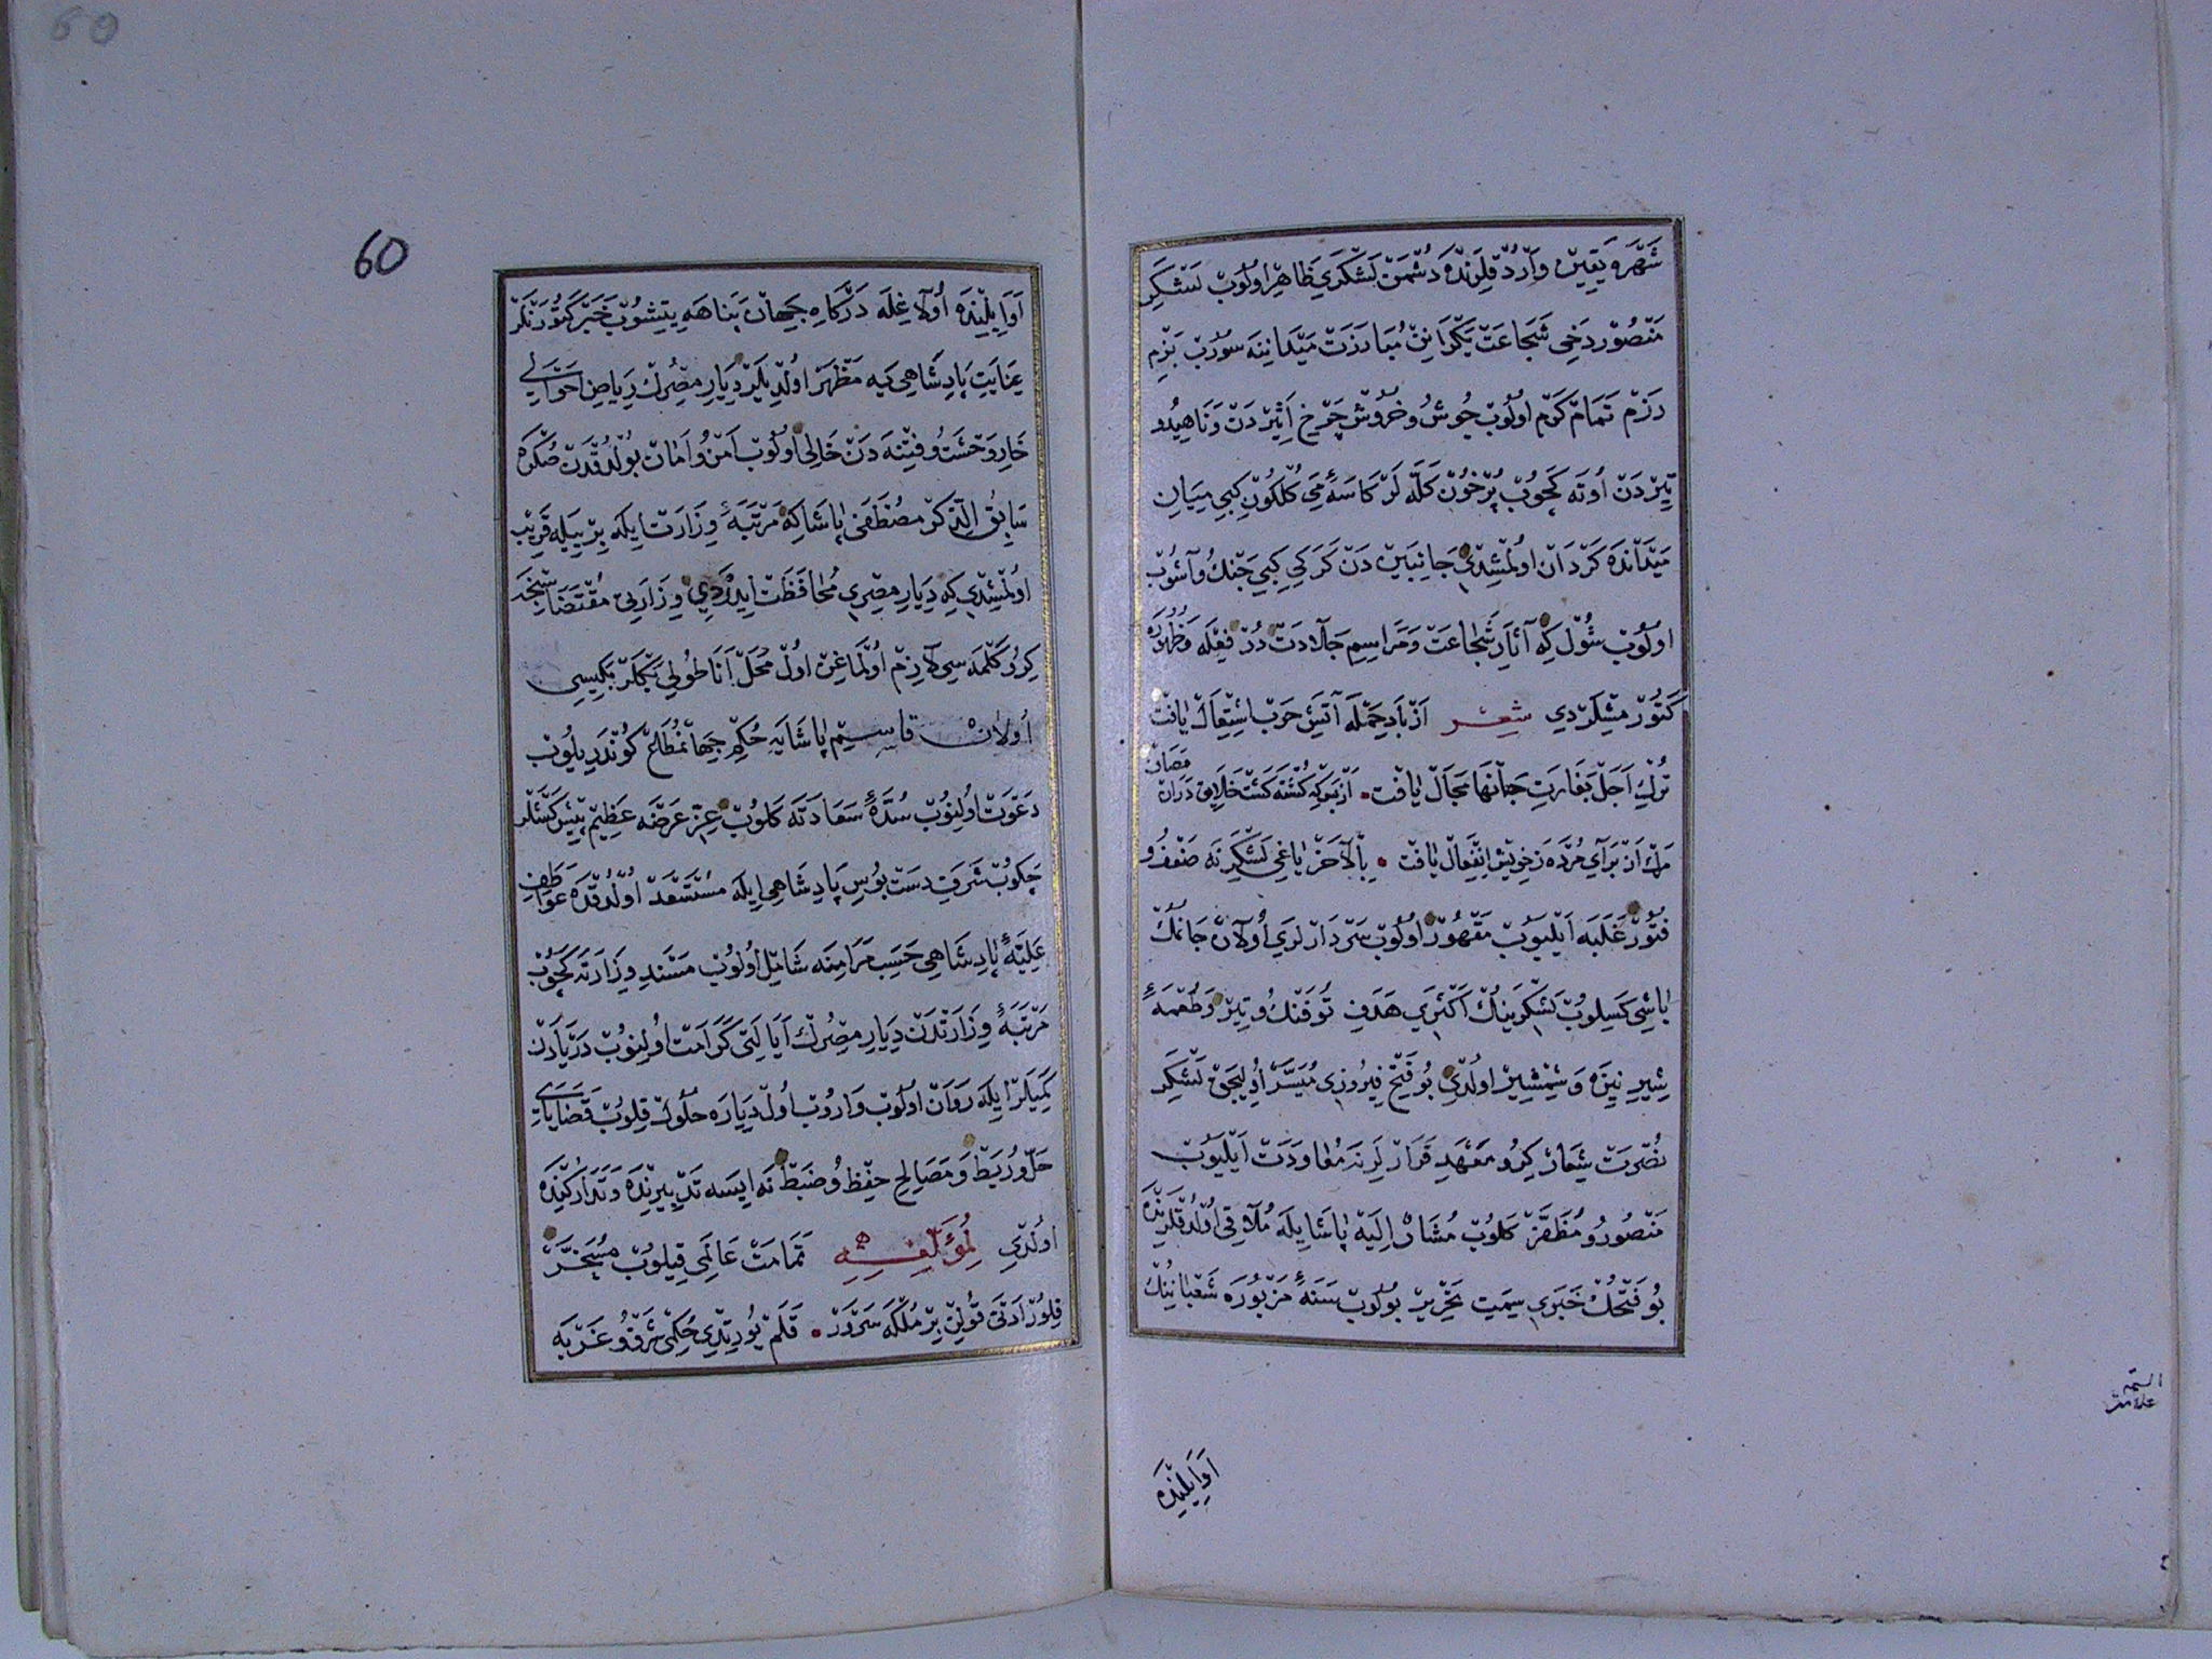 شَهْرَه يَقِينْ وَارْدُقْلَرِنْدَه دُشْمَنْ لَشْكَرِي ظَاهِرْ اولُوبْ لَشْكَرِ
مَنْصُورْ دَخِي شَجَاعَتْ يَكْرَانِنْ مُبَارَزَتْ مَيْدَانِنَه سورُبْ بَزْمِ
رَزْم تَمَامْ كَرْم اولُوبْ جُوشُ وخُرُوشْ چَرْخِ اَثِيرْدَنْ وَنَاهِيدُو
تِيرْدَنْ أوتَه كَچُوبْ پُرْخُونْ كَلَّه لَرْ كَاسَهٔ مَي كُلْكُونْ كِبِي مِيَانِ
مَيْدَانْدَه كَرْدَانْ اولْمَشِيدِي جَانِبَيْنْ دَنْ كَرَكِي كِبِي جَنْكُ وآشُوبْ
اولُوبْ شُولْ كِه آثَارِ شَجَاعَتْ وَمَرَاسِمِ جَلَادَتْ دُرْ فِعْلَه وَظُهُورَه
كَتُورْمِشْلَرْدِي شعر اَزْ بَادِ حَمْلَه آتَشِ حَرْبْ اشْتِعَالْ يَافْتْ
تُرْكِ اَجَلْ بَغَارَتِ جَانْهَا مَجَالْ يَافْتْ • اَزْبَسْ كِه كُشْتَه كَشْتْ خَلَايِقْ دَرَانْ مَصَافْ
مَرْكْ اَزْ بَرَاي مُرْدَه زِخويشْ اِنْفِعَالْ يَافْتْ • بِالْآخَرْ يَاغِي لَشْكَرِنَه ضَعْفُ و
فُتُورْ غَلَبَه اَيْلَيُوبْ مَقْهُورْ اولُوبْ سَرْدَارْلَرِي أولَانْ جَانِمْكْ
بَاشِي كَسِلُوبْ لَشْكَرِينُكْ اَكْثَرِي هَدَفِ تُوفَنْكُ وتِيرْ وَطُعْمَهٔ
شِيرِ نِيزَه وَشَمْشِيرْ اولْدِي بُو فَتْحِ فِيرُوزِي مُيَسَّرْ أولِيجَقْ لَشْكَرِ
نُصْرَتْ شِعَارْ كِرُو مَعْهَدِ قَرَارْلَرِنَه مُعَاوَدَتْ اَيْلَيُوبْ
مَنْصُورُو مُظَفَّرْ كَلُوبْ مُشَارْ اِلَيْه پَاشَايِلَه مُلَاقِي اولْدُقْلَرِنْدَه
بُو فَتْحُكْ خَبَرِي سِمَتِ تَحْرِيرْ بولُوبْ سَنَهٔ مَزْبُورَه شَعْبَانِنُكْ
اَوَايِلِنْدَه
60
60
اَوَايِلِنْدَه أولَاغِلَه دَرْكَاهِ جِهَانْ پَنَاهَه يِتِشُوبْ خَبَرْ كَتُورَنْلَرْ
عِنَايَتِ پَادِشَاهِي يَه مَظْهَرْ اولْدِيلَرْ دِيَارِ مِصْرِكْ رِيَاضِ اَحْوَالِي
خَارِ وَحْشَتُ وفِتْنَه دَنْ خَالِي اولُوبْ اَمْنُ وأَمَانْ بُولْدُقْدَنْ صُكْرَه
سَابِقُ الذِّكْرْ مُصْطَفَى پَاشَاكِه مَرْتَبَهٔ وِزَارَتْ ايلَه بِرْ ييلَه قَرِيبْ
اولْمَشِيدِي كِه دِيَارِ مِصْرِي مُحَافَظَتْ ايدَرْدِي وِزَارَتِي مُقْتَضَاسِنْجَه
كِرُو كَلْمَه سِي لَازِمْ اولْمَاغِنْ اولْ مَحَلْ اَنَاطُولِي بَكْلَرْبَكِيسِي
أولانْ قاسِمْ پَاشَايَه حُكْمِ جِهَانْمُطَاعْ كُونْدَرِيلُوبْ
دَعْوَتْ اولِنُوبْ سُدَّهٔ سَعَادَتَه كَلُوبْ عِزِّ عَرْضَه عَظِيمْ پِيشْكَشْلَرْ
چَكُوبْ شَرَفِ دَسْتْ بُوسِ پَادِشَاهِي ايلَه مُسْتَسْعَدْ اولْدُقْدَه عَوَاطِفِ
عَلِيَّهٔ پَادِشَاهِي حَسَبِ مَرَامِنَه شَامِلْ اولُوبْ مَسْنَدِ وِزَارَتَه كَچُوبْ
مَرْتَبَهٔ وِزَارَتْدَنْ دِيَارِ مِصْرِكْ اَيَالَتِي كَرَامَتْ اولِنُوبْ دَرْيَادَنْ
كَمِيلَرْ ايلَه رَوَانْ اولُوبْ وَارُوبْ اولْ دِيَارَه حُلُولْ قِلُوبْ قَضَايَايِ
حَلّْ ورَبْطْ وَمَصَالِحِ حِفْظُ وضَبْطْ نَه ايسَه تَدْبِيرِنْدَه وَتَدَارُكِنْدَه
اولْدِي لِمُؤَلِّفِهِ تَمَامَتْ عَالَمِي قِيلُوبْ مُسَخَّرْ
قِلُورْ اَدْنَى قُولِنْ بِرْ مُلْكَه سَرْوَرْ • قَلَمْ يُورِتْدِي حُكْمِي شَرْقُ و غَرْبَه